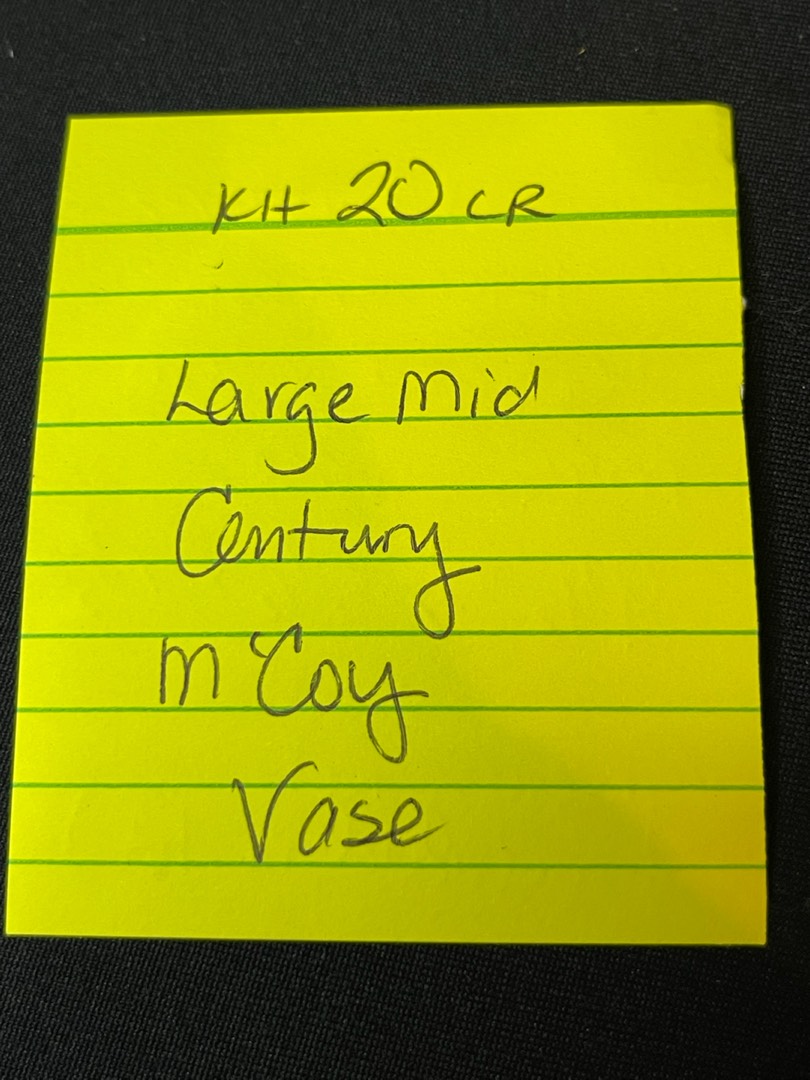 KH 20 CR
Large Mid
Century
McCoy
Vase